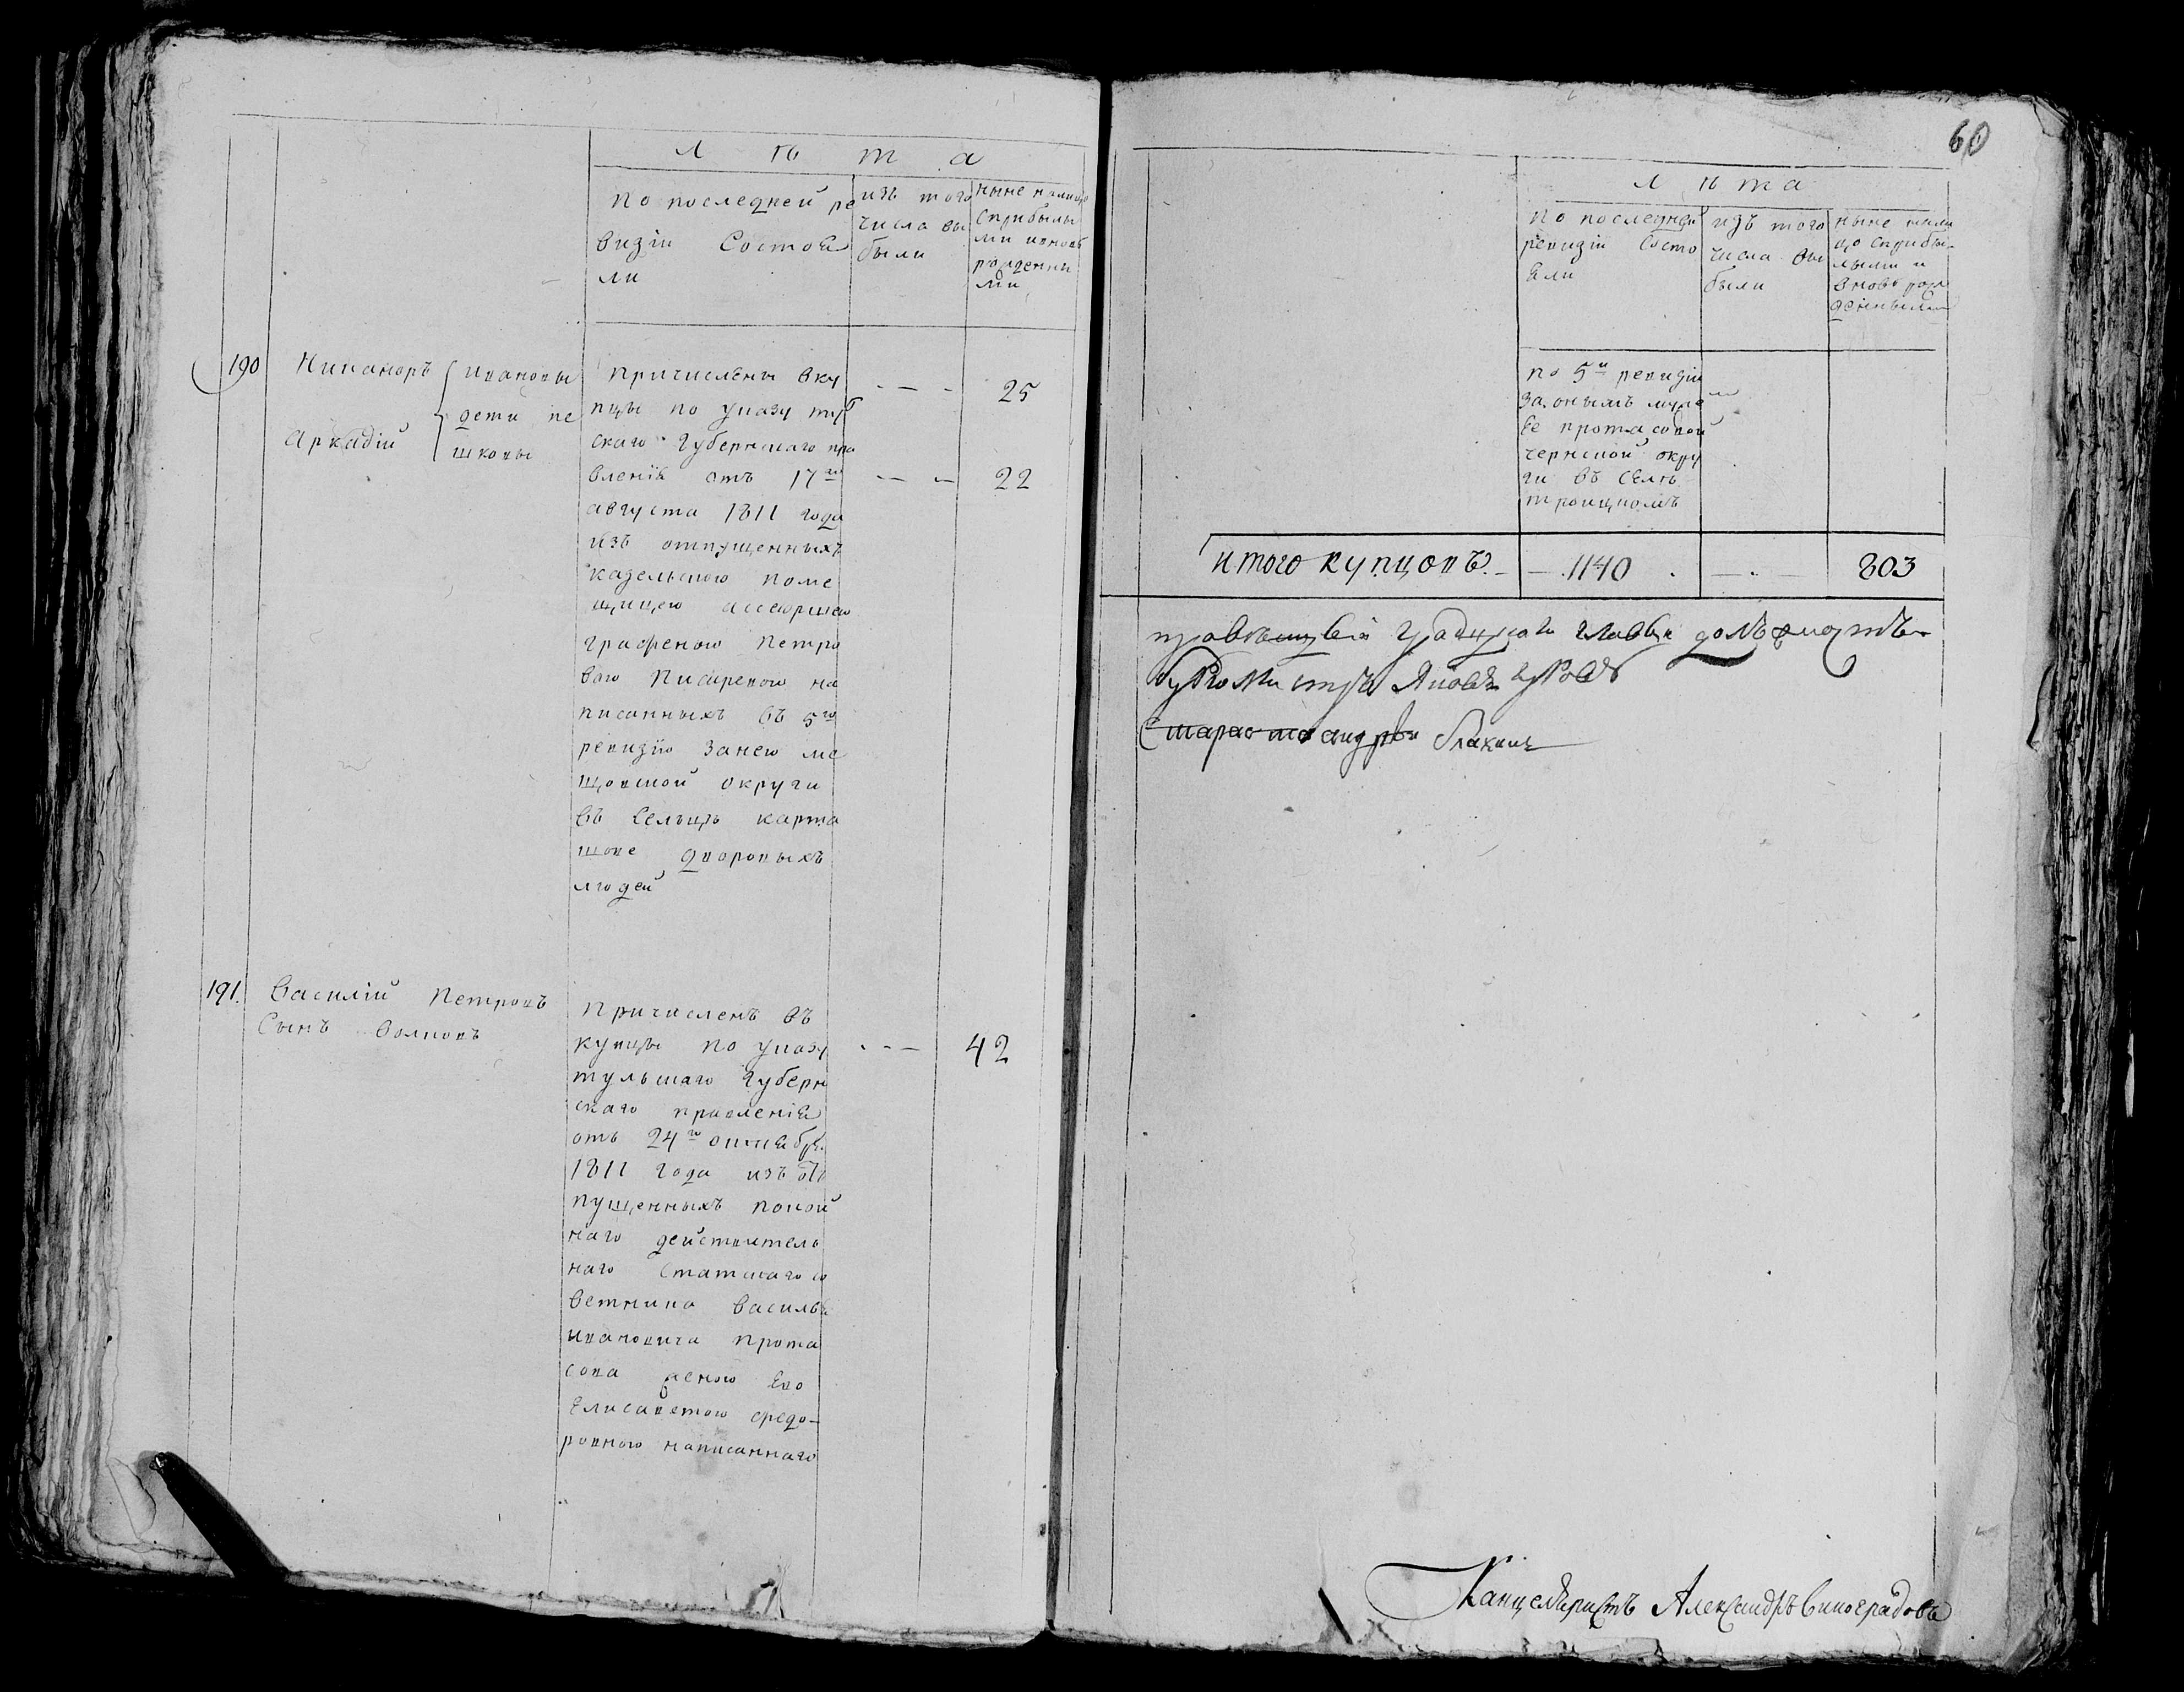 л ѣ т а
по последней ре
визіи Состоя
ли
изъ того
числа вы
были
ныне налице
сприбылы
ми ивновь
рожденны
ми
190
Никаноръ
Аркадій
ивановы
дети пе
шковы
причислены вку
пцы по указу тул
скаго губернскаго пра
вленія отъ 17го
августа 1811 года
изъ отпущенныхъ
кадельскою поме
щицею асесоршею
графеною петро
вою писаревою на
писанныхъ въ 5ю
ревизію занею ме
щовской округи
въ Сельцѣ карта
шове дворовыхъ
людей
25
22
191.
Василій Петровъ
Сынъ волковъ
причисленъ въ
купцы по указу
тульскаго губерн
скаго правленія
отъ 24го октября
1811 года изъ от
пущенныхъ покой
наго действитель
наго статскаго со
ветника василья
ивановича прота
сова женою Его
Елисаветою федо-
ровною написаннаго
42
60
л ѣ т а
по последней
ревизіи Состо
яли
изъ того
числа вы
были
ныне нали
цо сприбы-
лыми и
вновь рож
денными
по 5й ревизіи
за онымъ муже
ее протасовой
чернской окру
ги въ Селѣ
троицкомъ
итого купцовъ. 1140 803
градскаго главы
бургомистръ Яковъ
Староста андрей
Канцеляристъ Александръ Виноградовъ